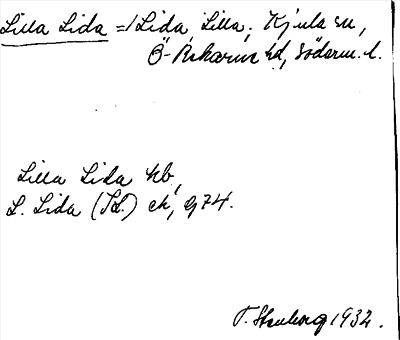 Lilla Lida =/ Lida, Lilla, Kjula sn,
Ö-Rekarne hd, Söderm. l.
Lilla Lida hb,
L. Lida (St.) ek, g74.
T. Stenborg 1932.